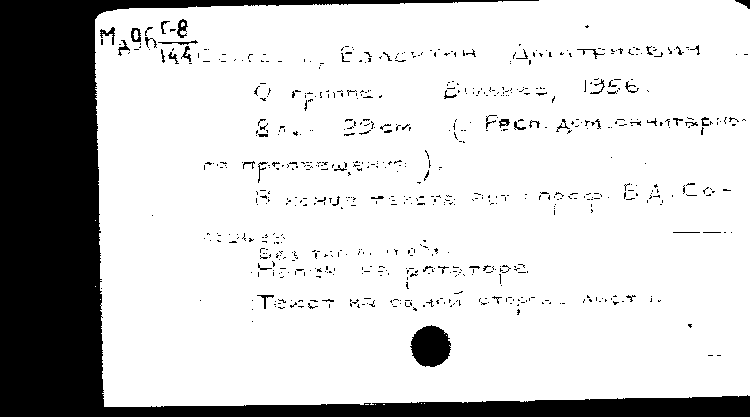 Мд96 Г-8
144
Валентин Дмитриевич
О гриппе. Вильнюс, 1956.
8 л. 29 см (Респ. дом санитарно-
го просвещения).
В конце текста авт.: проф. В.Д. Со-
Без тит. л. и обл.
Напеч. на ротаторе
Текст на одной стороне листа.